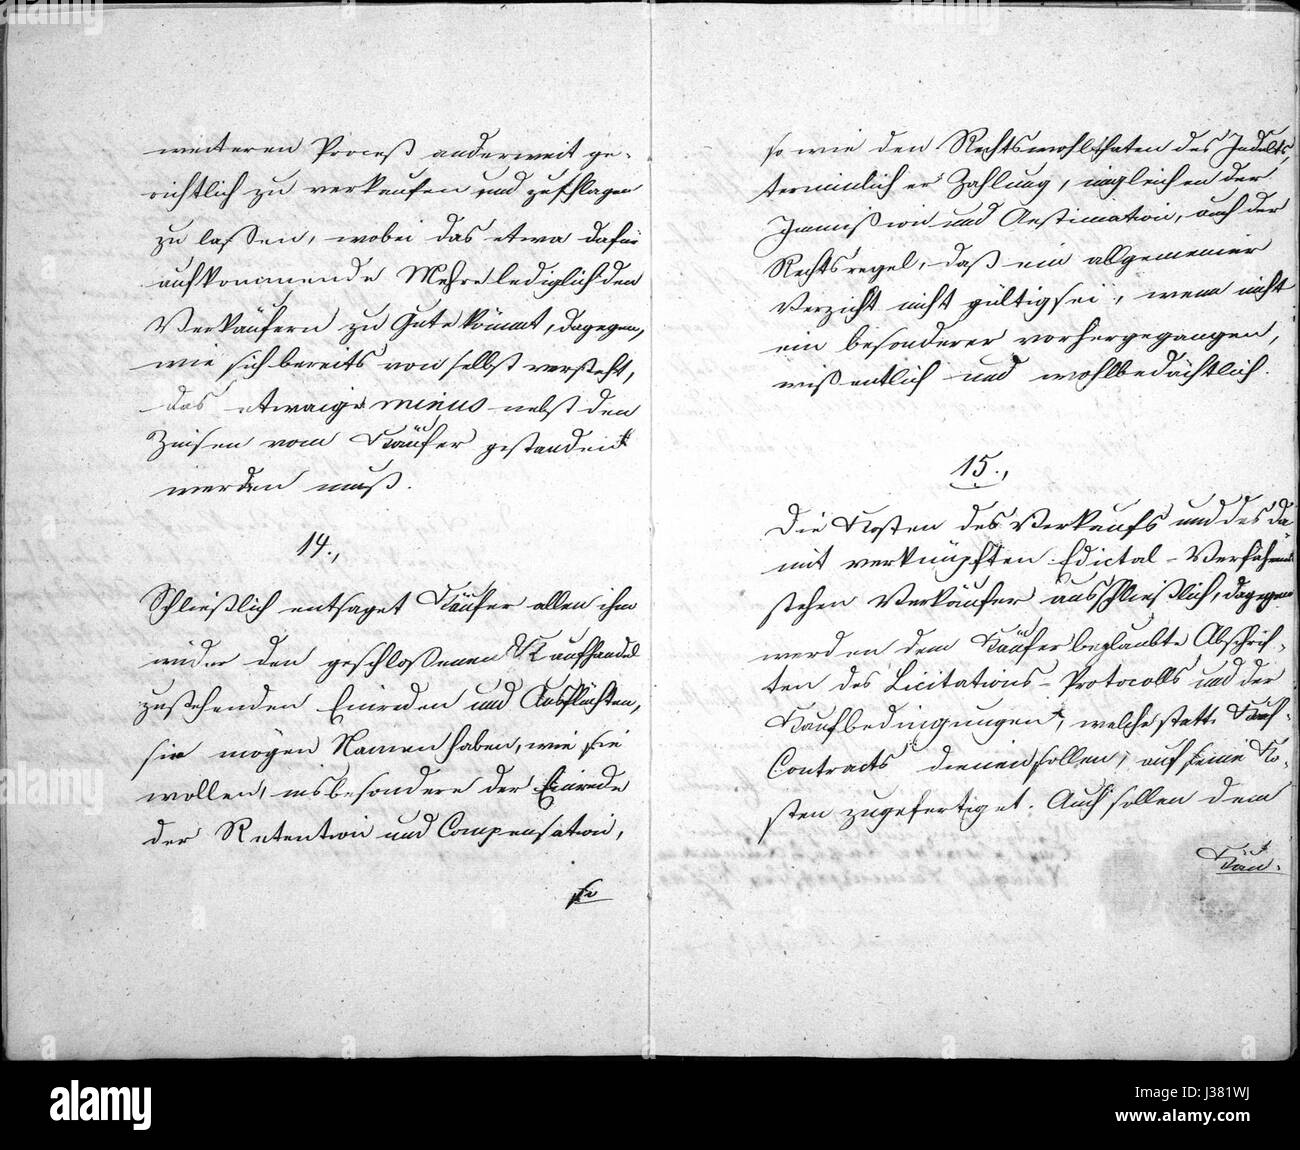 weiteren Proceß anderweit ge-
richtlich zu verkaufen und zuschlagen
zu laßen, wobei das etwa dafür
aufkommende Mehre lediglich den
Verkäufern zu Gute kömmt, dagegen,
wie sich bereits von selbst versteht,
das etwaige minus nebst den
Zinsen vom Käufer gestanden
werden muß.
14.,
Schließlich entsaget Käufer allen ihm
wider den geschloßenen Kaufhandel
zustehenden Einreden und Ausflüchten,
sie mögen Namen haben, wie sie
wollen, insbesondere der Einrede
der Retention und Compensation,
so
so wie den Rechtswohlthaten des Indults,
terminlicher Zahlung, ingleichen der
Immißion und Aestimation, auch der
Rechtsregel, daß ein allgemeiner
Verzicht nicht gültig sei, wenn nicht
ein besonderer vorhergegangen,
wißentlich und wohlbedächtlich.
15.,
Die Kosten des Verkaufs und des da
mit verknüpften Edictal-Verfahrens
stehen Verkäufer ausschließlich, dagegen
werden dem Käufer beglaubte Abschrif-
ten des Licitations-Protocolls und der
Kaufbedingungen, welche statt Kauf-
Contracts dienen sollen, auf seine Ko-
sten zugefertiget. Auch sollen dem
Käu-
alamy
J381WJ
www.alamy.com